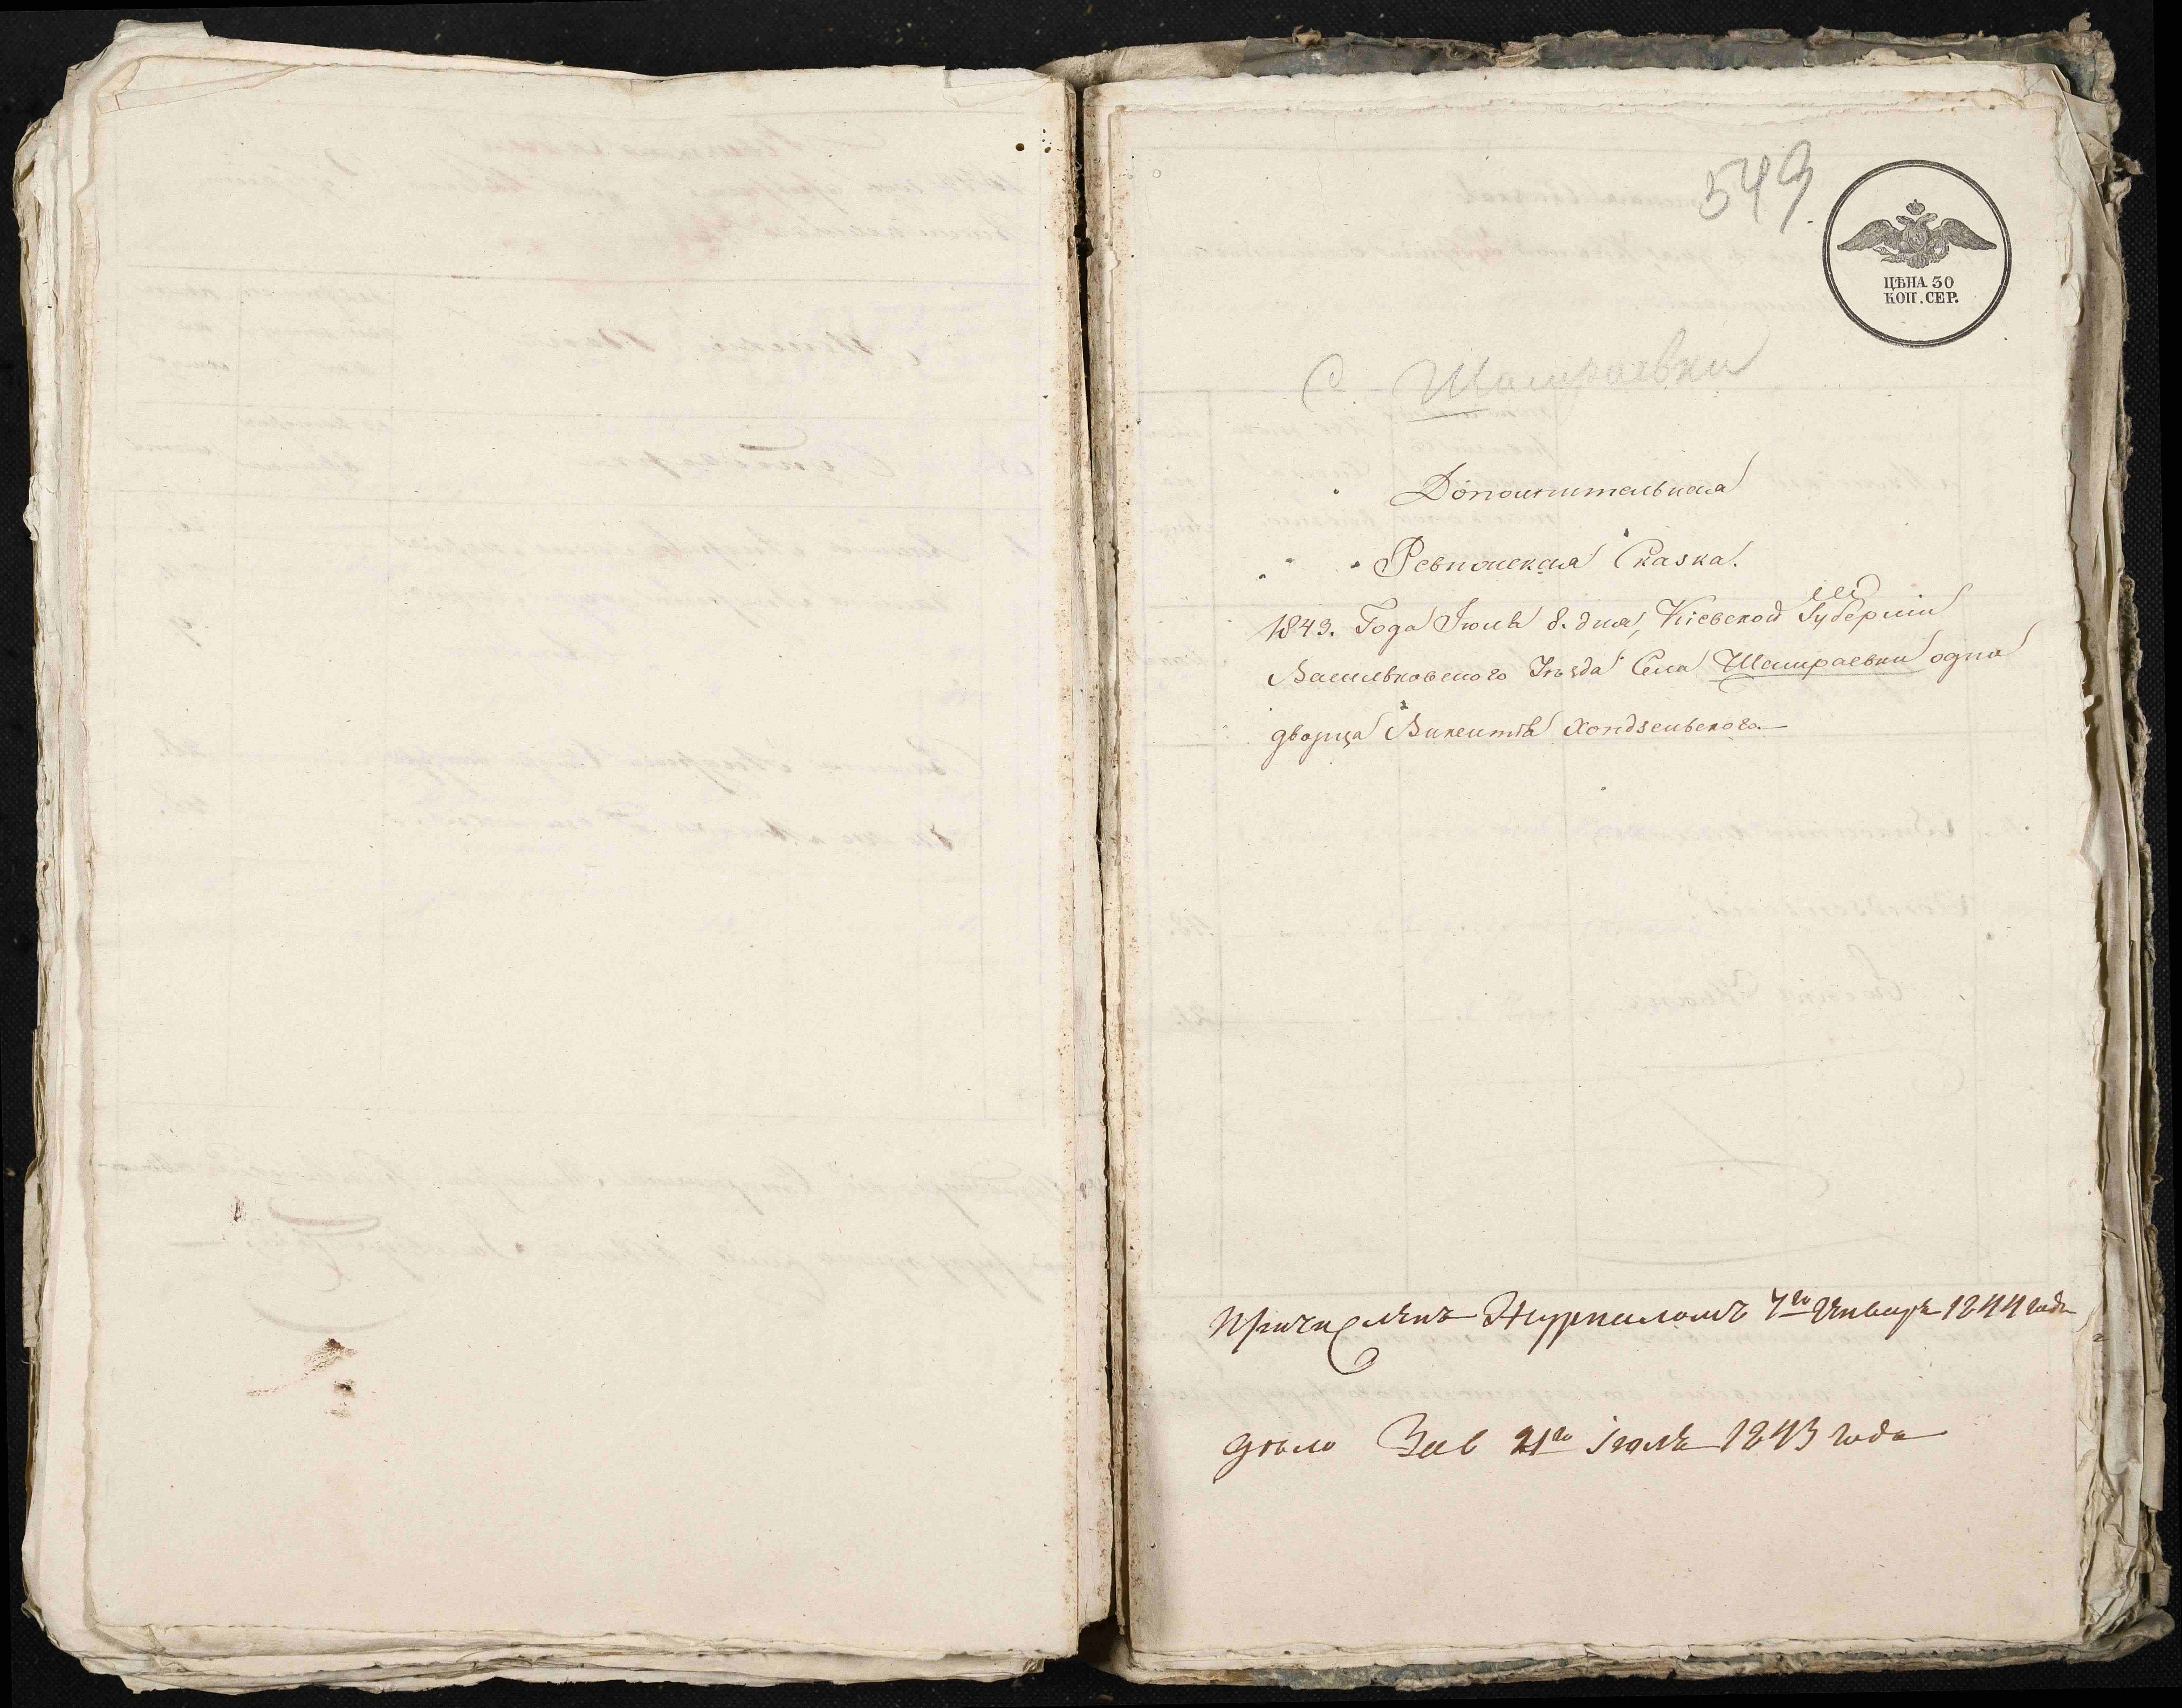 549.
ЦѢНА 30
КОП. СЕР.
С. Шамраевки
Дополнительная
Ревизская Сказка.
1843. Года Іюля 8. дня, Кіевской Губерніи
Васильковского Уѣзда Села Шамраевки одно
дворца Викентія Хондзеньского
Причисленъ Журналомъ 7го Января 1844 года
дѣло 21го іюля 1843 года